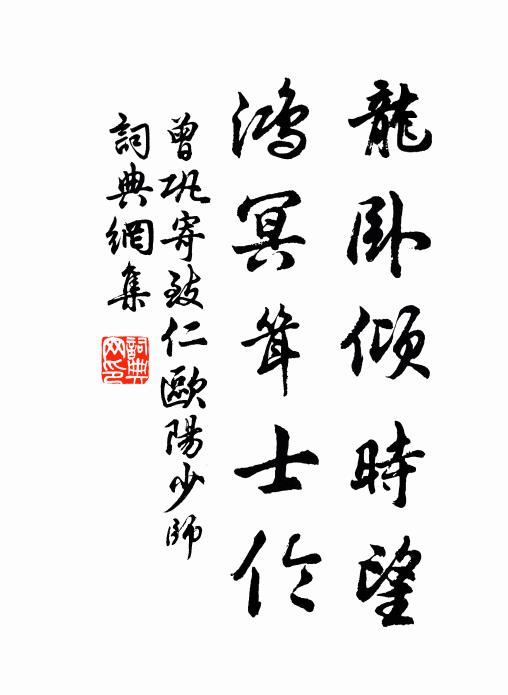 龍臥傾時望
鴻冥聳士伦
曾巩寄致仁歐陽少師
詞典網集
詞典網印